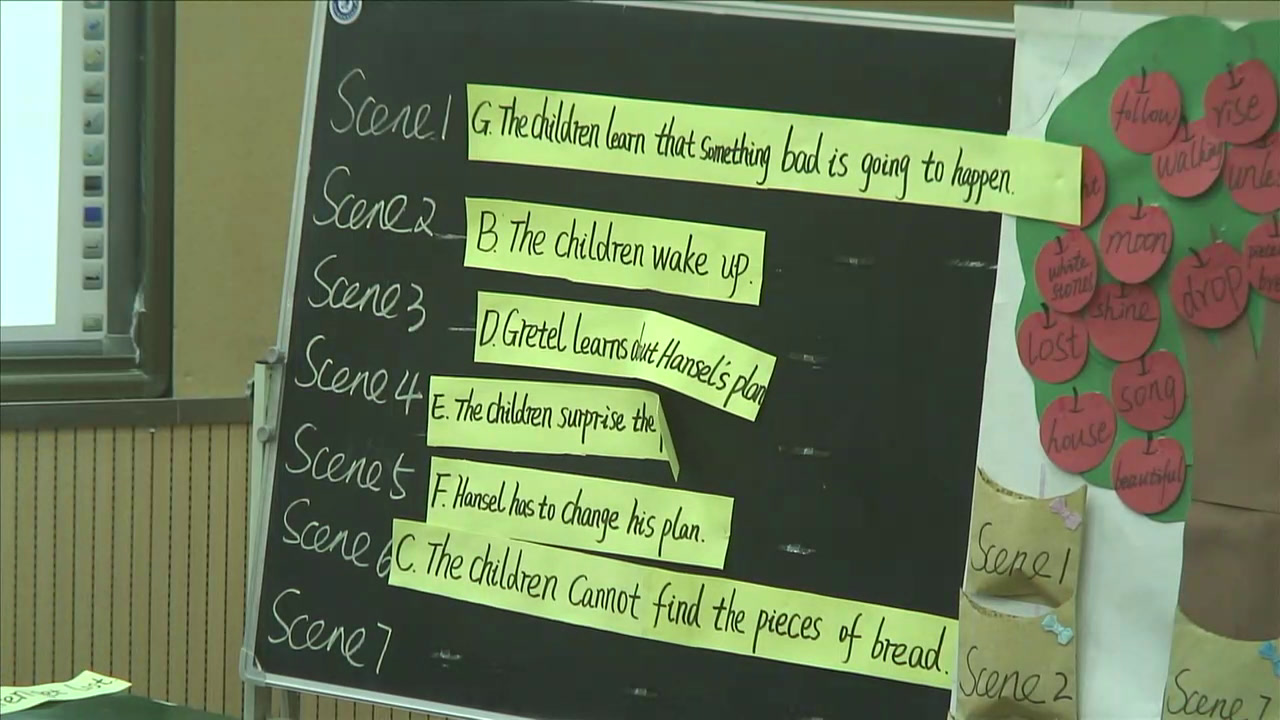 Scene 1 G. The children learn that something bad is going to happen.
Scene 2 B. The children wake up.
Scene 3 D. Gretel Learns Hansel's plan
Scene 4 E. The children surprise the
Scene 5 F. Hansel has to change his plan.
Scene 6 C. The children Cannot find the pieces of bread.
Scene 7
follow
rise
walking
moon
white stones
drop
shine
lost
song
house
beautiful
Scene 1
Scene 2
Scene 7